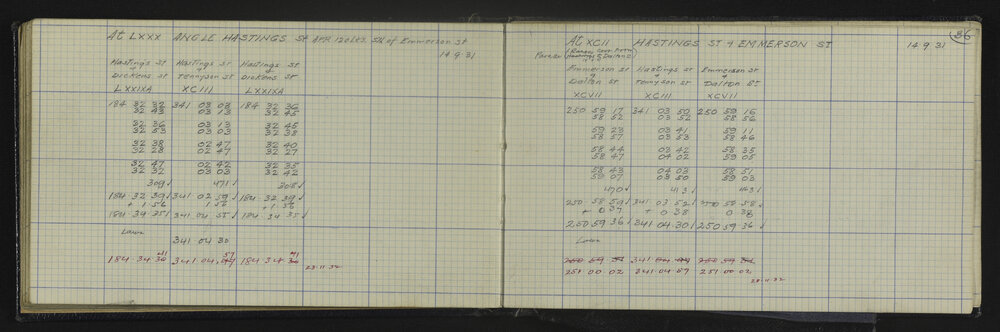 At LXXX ANGLE HASTINGS St APP 120LKS. Sth of Emmerson St
14.9.31
Hastings St Hastings St Hastings St
& & &
Dickens St Tennyson St Dickens St
LXXIXA XCIII LXXIXA
184 32 32 341 03 08 184 32 36
32 43 03 13 32 45
32 36 03 13 32 45
32 53 03 03 32 38
32 38 02 47 32 40
32 28 02 47 32 27
32 47 02 42 32 35
32 32 03 03 32 42
309 √ 471 √ 308 √
184 32 39 √ 341 02 59 √ 184 32 39 √
+ 1 56 1 56 + 1 56
184 34 35 √ 341 04 55 √ 184 34 35 √
Lawn
341 04 30
41 57 41
184 34 36 341 04 184 34 36
23.11.32
36
At XCII HASTINGS ST & EMMERSON ST 14 9 31
Emmerson St Hastings St Emmerson St
& & &
Dalton St Tennyson St Dalton St
XCVII XCIII XCVII
250 59 17 341 03 50 250 59 16
58 52 03 52 58 56
59 23 03 41 59 11
58 57 03 53 58 46
58 44 03 42 58 35
58 47 04 02 59 05
58 43 04 03 58 51
59 07 03 50 59 03
470 √ 413 √ 463 √
250 58 59 √ 341 03 52 √ 250 58 58 √
+ 0 37 + 0 38 0 38
250 59 36 √ 341 04 30 √ 250 59 36 √
Lawn
250 59 341 04 250 59
251 00 02 341 04 57 251 00 02
23.11.32